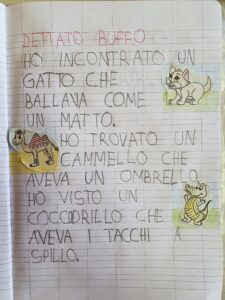 DETTATO BUFFO
HO INCONTRATO UN
GATTO CHE
BALLAVA COME
UN MATTO.
HO TROVATO UN
CAMMELLO CHE
AVEVA UN OMBRELLO
HO VISTO UN
COCCODRILLO CHE
AVEVA I TACCHI A
SPILLO.